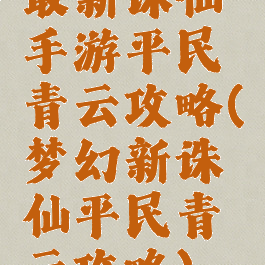 最新诛仙
手游平民
青云攻略(
梦幻新诛
仙平民青
云攻略)